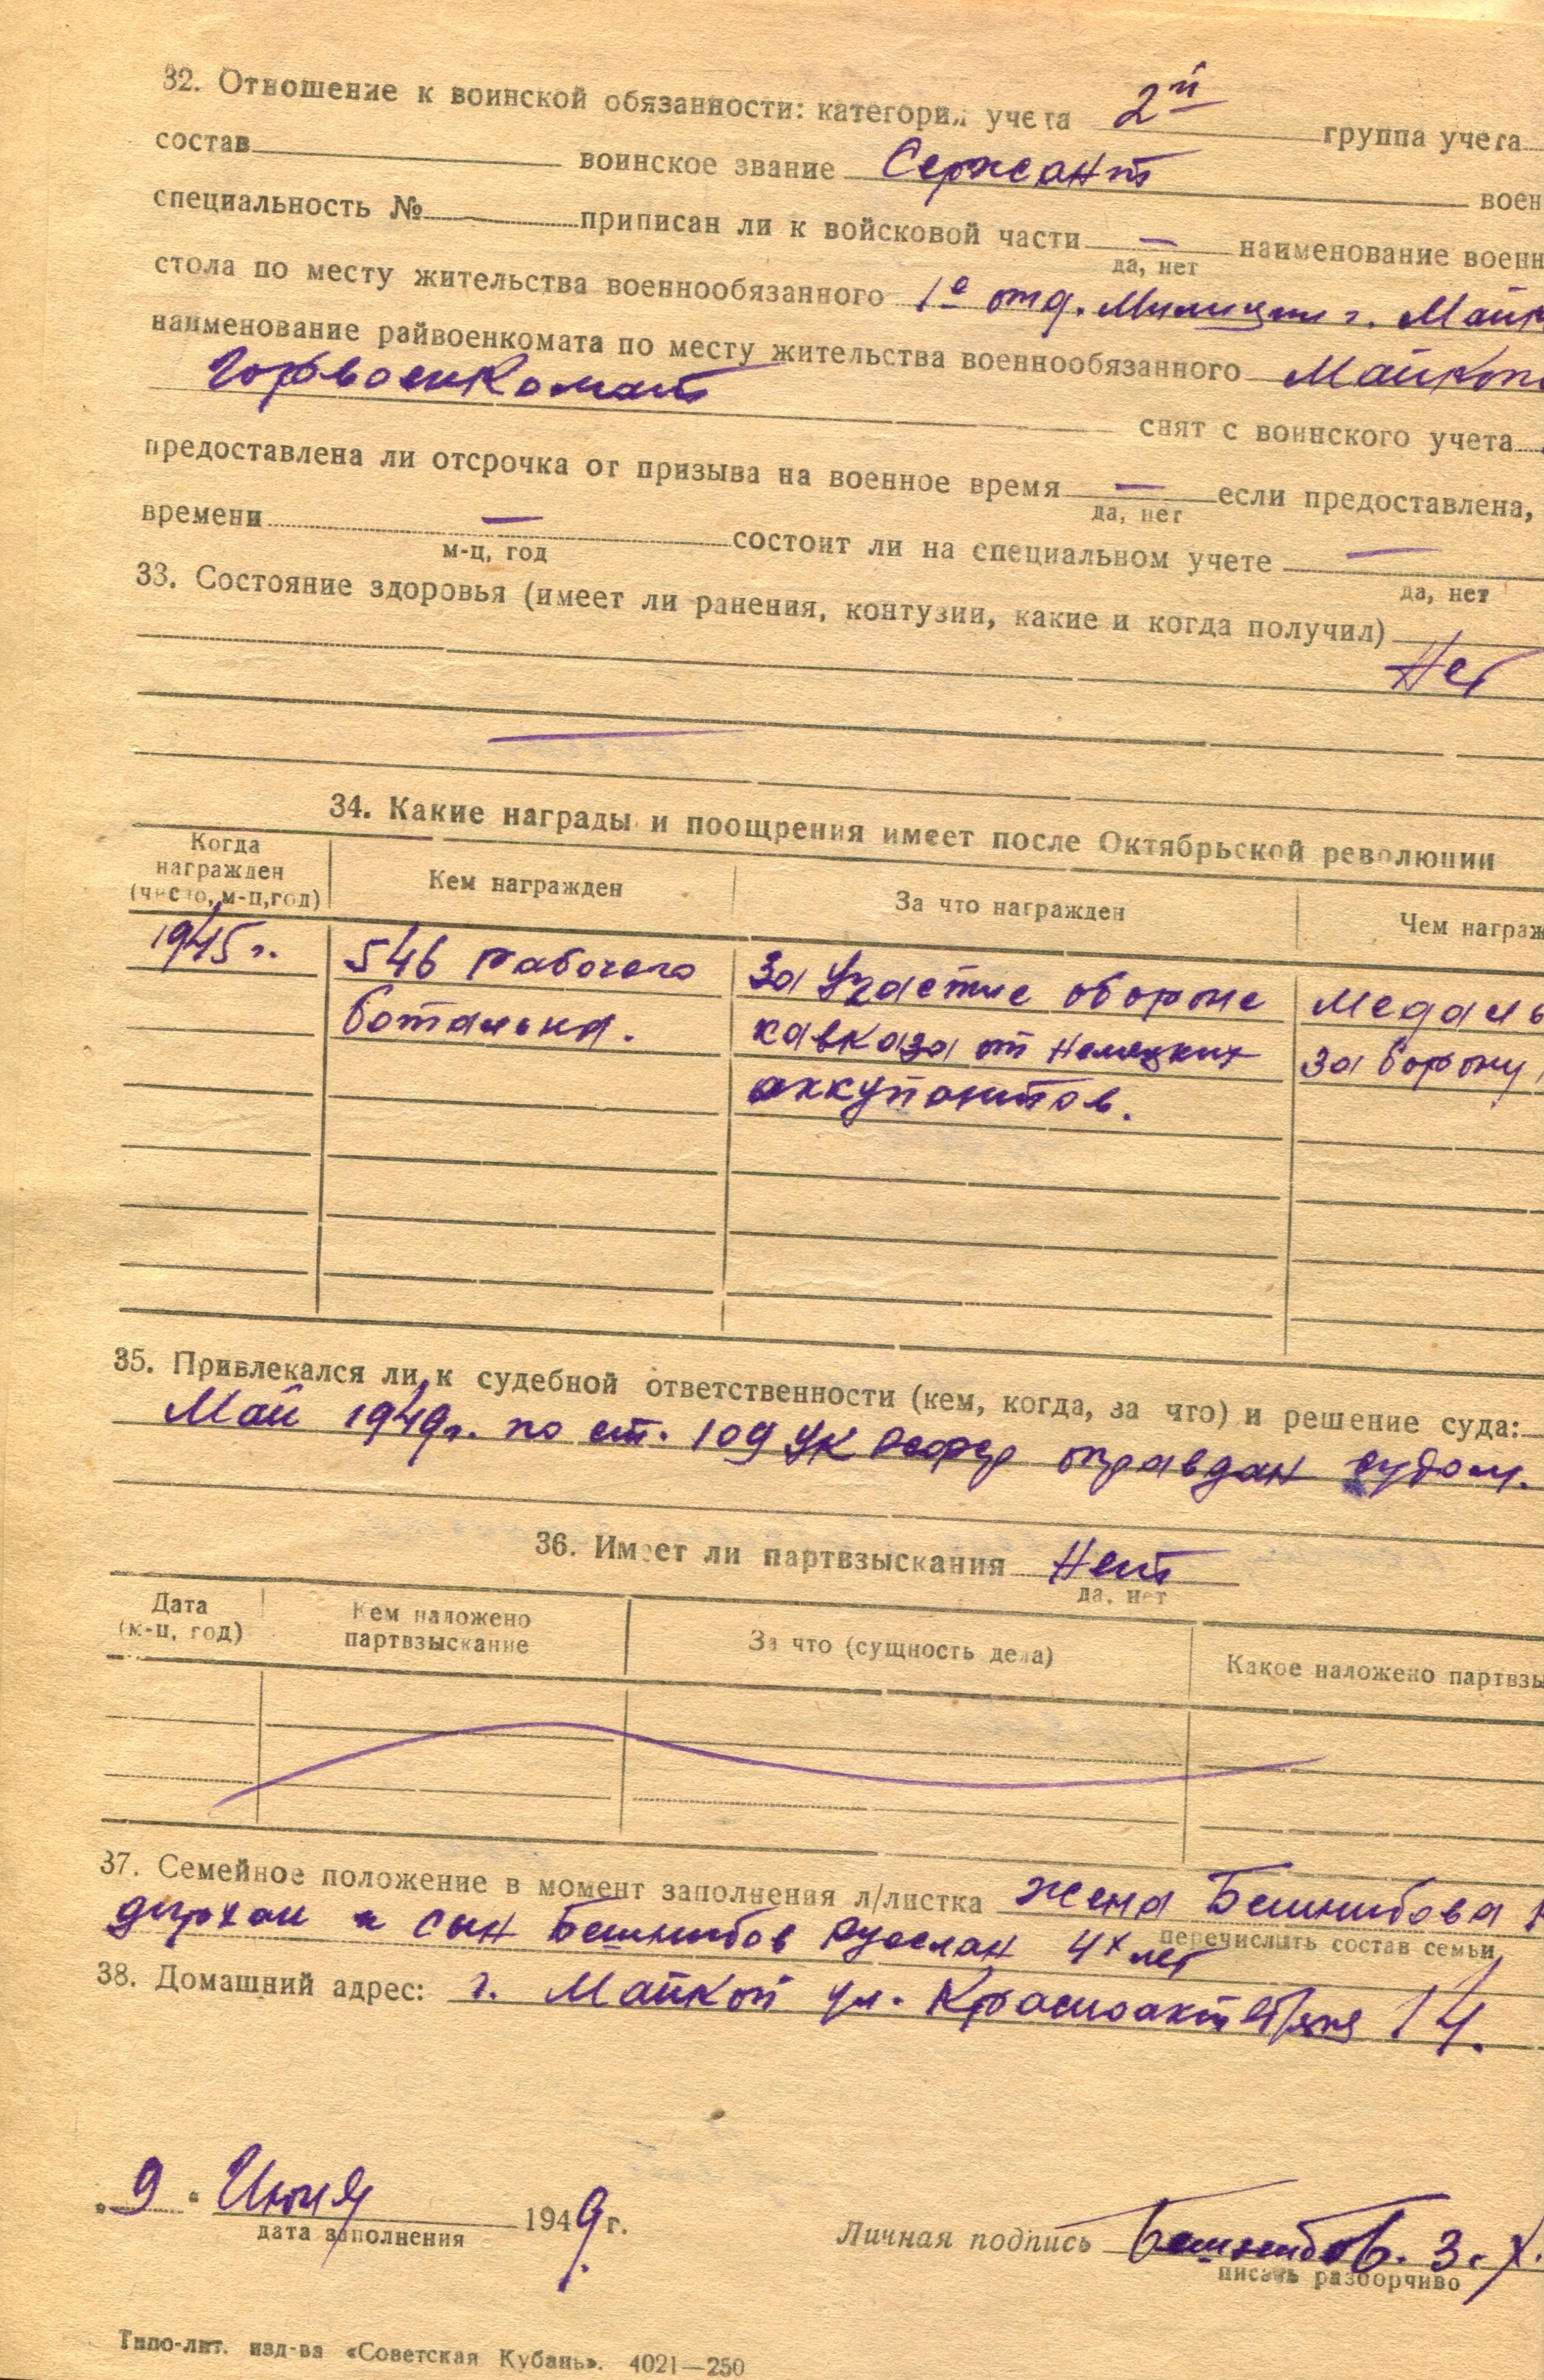 32. Отношение к воинской обязанности: категория учета 2й группа учета
состав воинское звание Сержант воен
специальность № приписан ли к войсковой части — наименование военн
да, нет
стола по месту жительства военнообязанного 1е отд. Милиции г. Майк
наименование райвоенкомата по месту жительства военнообязанного Майкоп
Горвоенкомат
снят с воинского учета
предоставлена ли отсрочка от призыва на военное время — если предоставлена,
да, нет
времени — состоит ли на специальном учете —
м-ц, год
да, нет
33. Состояние здоровья (имеет ли ранения, контузии, какие и когда получил)
Нет
—
34. Какие награды и поощрения имеет после Октябрьской революции
Когда награжден (число, м-ц, год) Кем награжден За что награжден Чем награж
1945 г. 546 рабочего За участие обороне Медаль
батальна. кавказа от немецких за борону
аккупантов.
35. Привлекался ли к судебной ответственности (кем, когда, за что) и решение суда:
Май 1949г. по ст. 109 УК РСФСР оправдан судом.
36. Имеет ли партвзыскания Нет
да, нет
Дата (м-ц, год) Кем наложено партвзыскание За что (сущность дела) Какое наложено партвзы
37. Семейное положение в момент заполнения л/листка жена Бешкибова
перечислить состав семьи
сын Бешкибов Руслан 4х лет
38. Домашний адрес: г. Майкоп ул. Краснооктябряня 14.
"9" Июня 1949 г.
дата заполнения
Личная подпись Бешкибов. З. Х.
писать разборчиво
Типо-лит. изд-ва «Советская Кубань». 4021—250